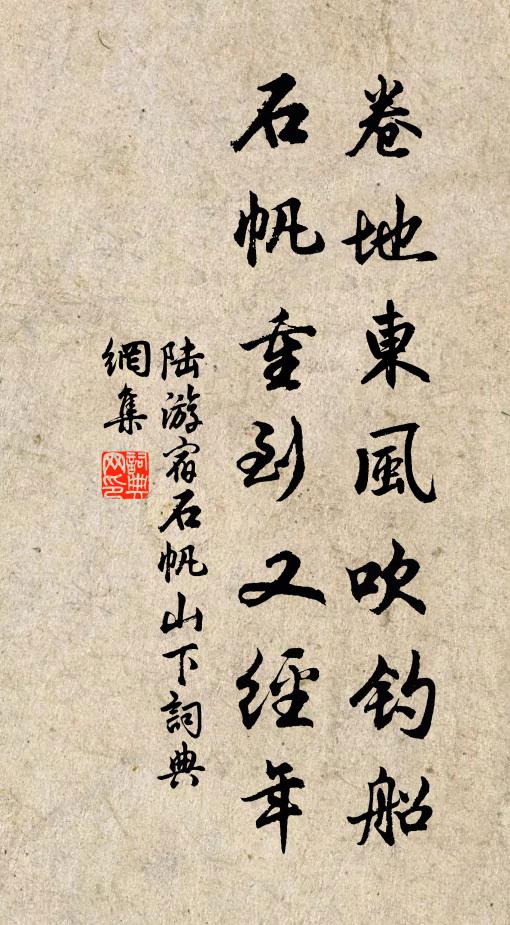 卷地東風吹钓船
石帆重到又經年
陆游宿石帆山下詞典
網集
詞典网印